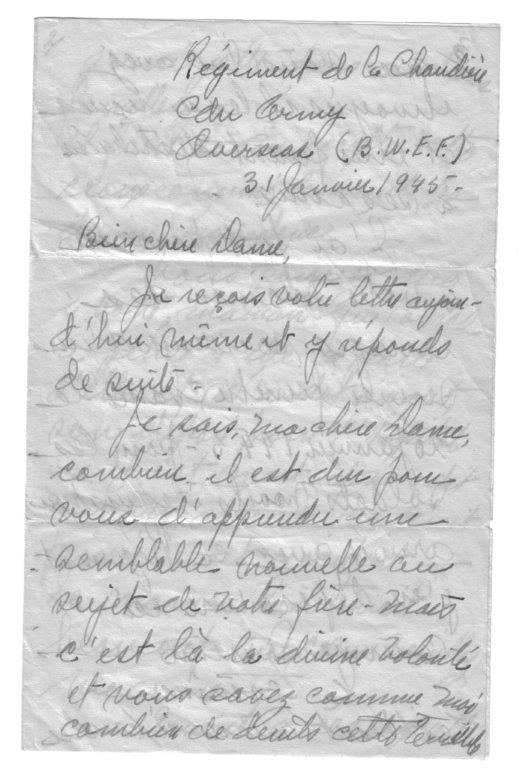 Régiment de la Chaudière
Cdn Army
Overseas (B.W.E.F.)
31 Janvier 1945.-
Bien chère Dame,
Je reçois votre lettre aujour-
d'hui même et y réponds
de suite.-
Je sais, ma chère Dame,
combien il est dur pour
vous d'apprendre une
semblable nouvelle au
sujet de votre frère - mais
c'est là la divine volonté
et vous savez comme moi
combien de deuils cette terrible